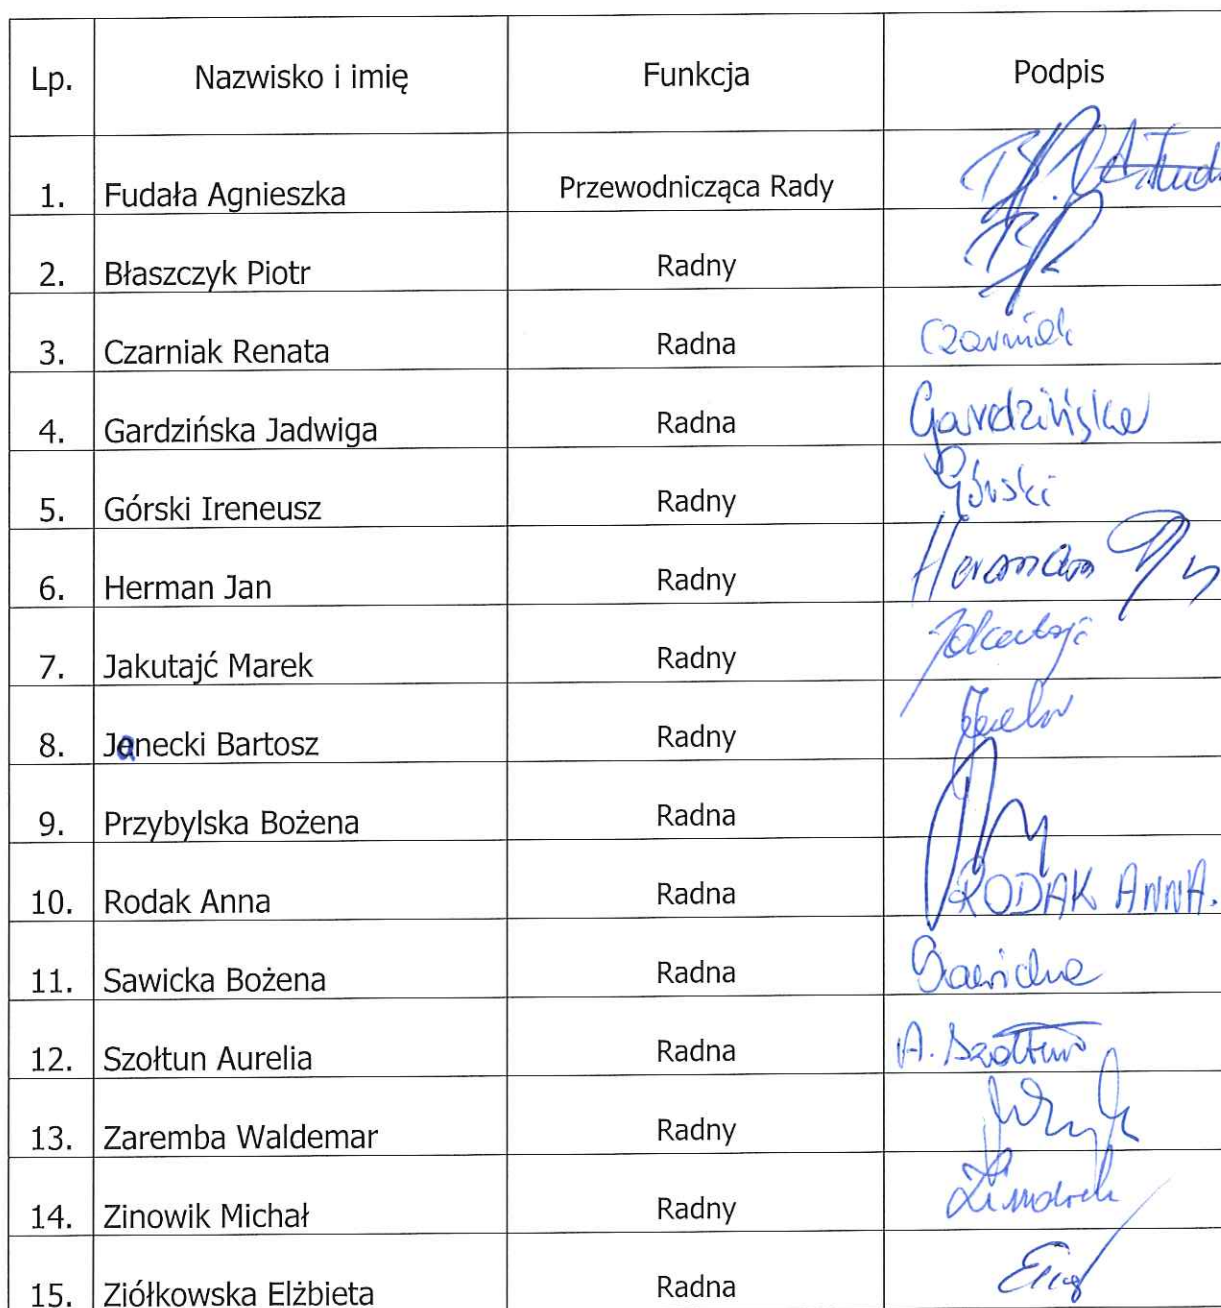 Lp. Nazwisko i imię Funkcja Podpis
1. Fudała Agnieszka Przewodnicząca Rady
2. Błaszczyk Piotr Radny
3. Czarniak Renata Radna Czarniak
4. Gardzińska Jadwiga Radna Gardzińska
5. Górski Ireneusz Radny Górski
6. Herman Jan Radny Herman
7. Jakutajć Marek Radny Jakutajć
8. Janecki Bartosz Radny
9. Przybylska Bożena Radna
10. Rodak Anna Radna RODAK ANNA.
11. Sawicka Bożena Radna Sawicka
12. Szołtun Aurelia Radna A. Szołtun
13. Zaremba Waldemar Radny
14. Zinowik Michał Radny
15. Ziółkowska Elżbieta Radna